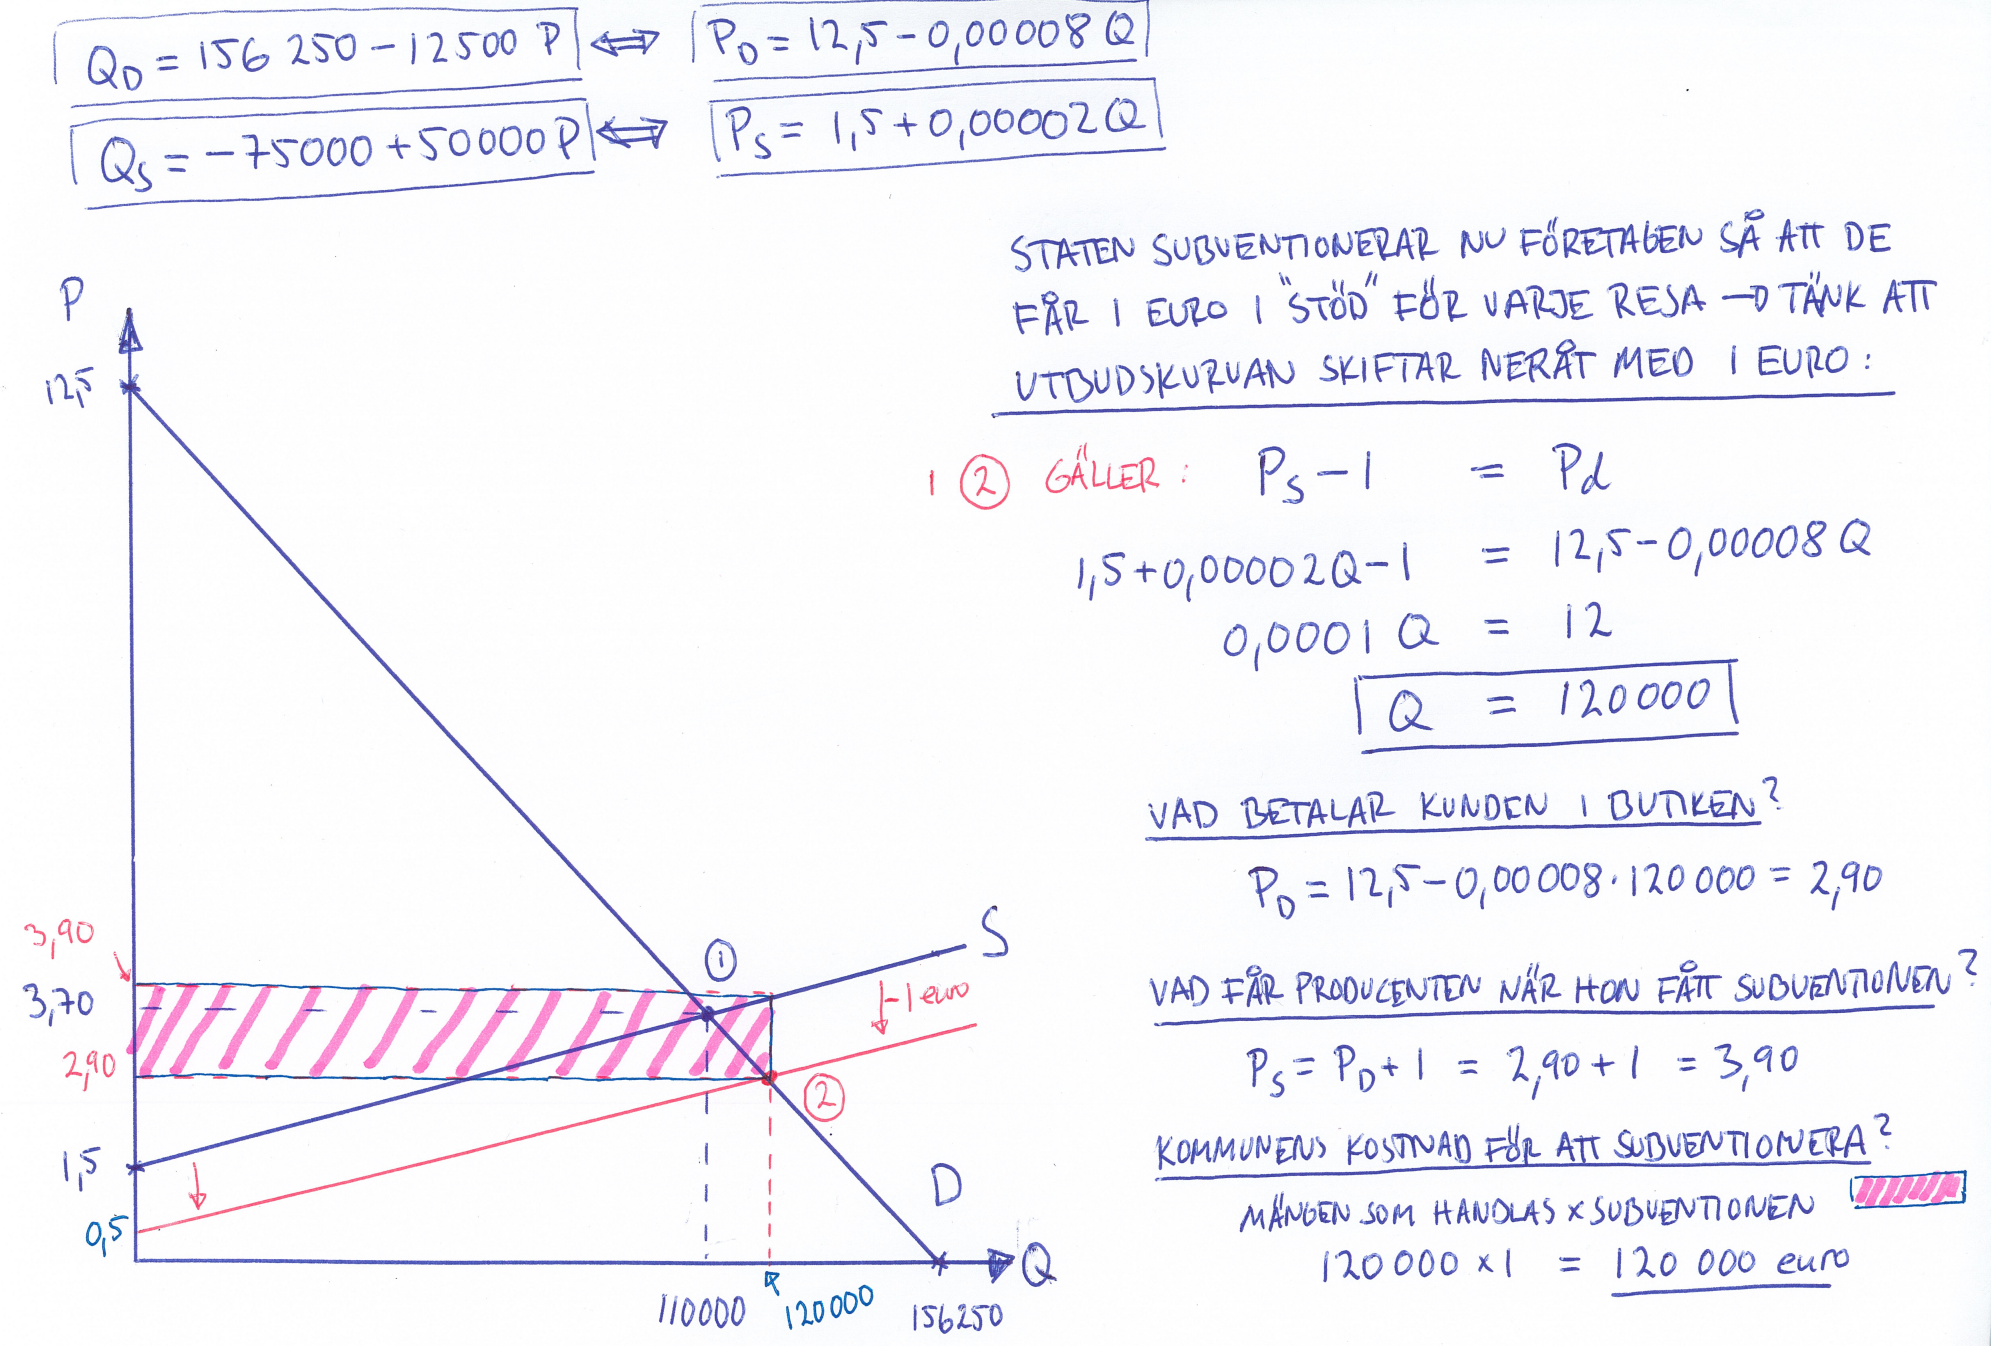 Q_D = 156 250 - 12500 P ⟺ P_D = 12,5 - 0,00008 Q
Q_S = -75000 + 50000 P ⟺ P_S = 1,5 + 0,00002 Q
STATEN SUBVENTIONERAR NU FÖRETAGEN SÅ ATT DE
FÅR 1 EURO I "STÖD" FÖR VARJE RESA → TÄNK ATT
UTBUDSKURVAN SKIFTAR NERÅT MED 1 EURO:
I ② GÄLLER: P_S - 1 = P_d
1,5 + 0,00002Q - 1 = 12,5 - 0,00008 Q
0,0001 Q = 12
Q = 120000
VAD BETALAR KUNDEN I BUTIKEN?
P_D = 12,5 - 0,00008 · 120 000 = 2,90
VAD FÅR PRODUCENTEN NÄR HON FÅTT SUBVENTIONEN?
P_S = P_D + 1 = 2,90 + 1 = 3,90
KOMMUNENS KOSTNAD FÖR ATT SUBVENTIONERA?
MÄNGEN SOM HANDLAS x SUBVENTIONEN
120 000 x 1 = 120 000 euro
P
12,5
3,90
3,70
2,90
1,5
0,5
①
S
-1 euro
②
D
Q
110000
120000
156250